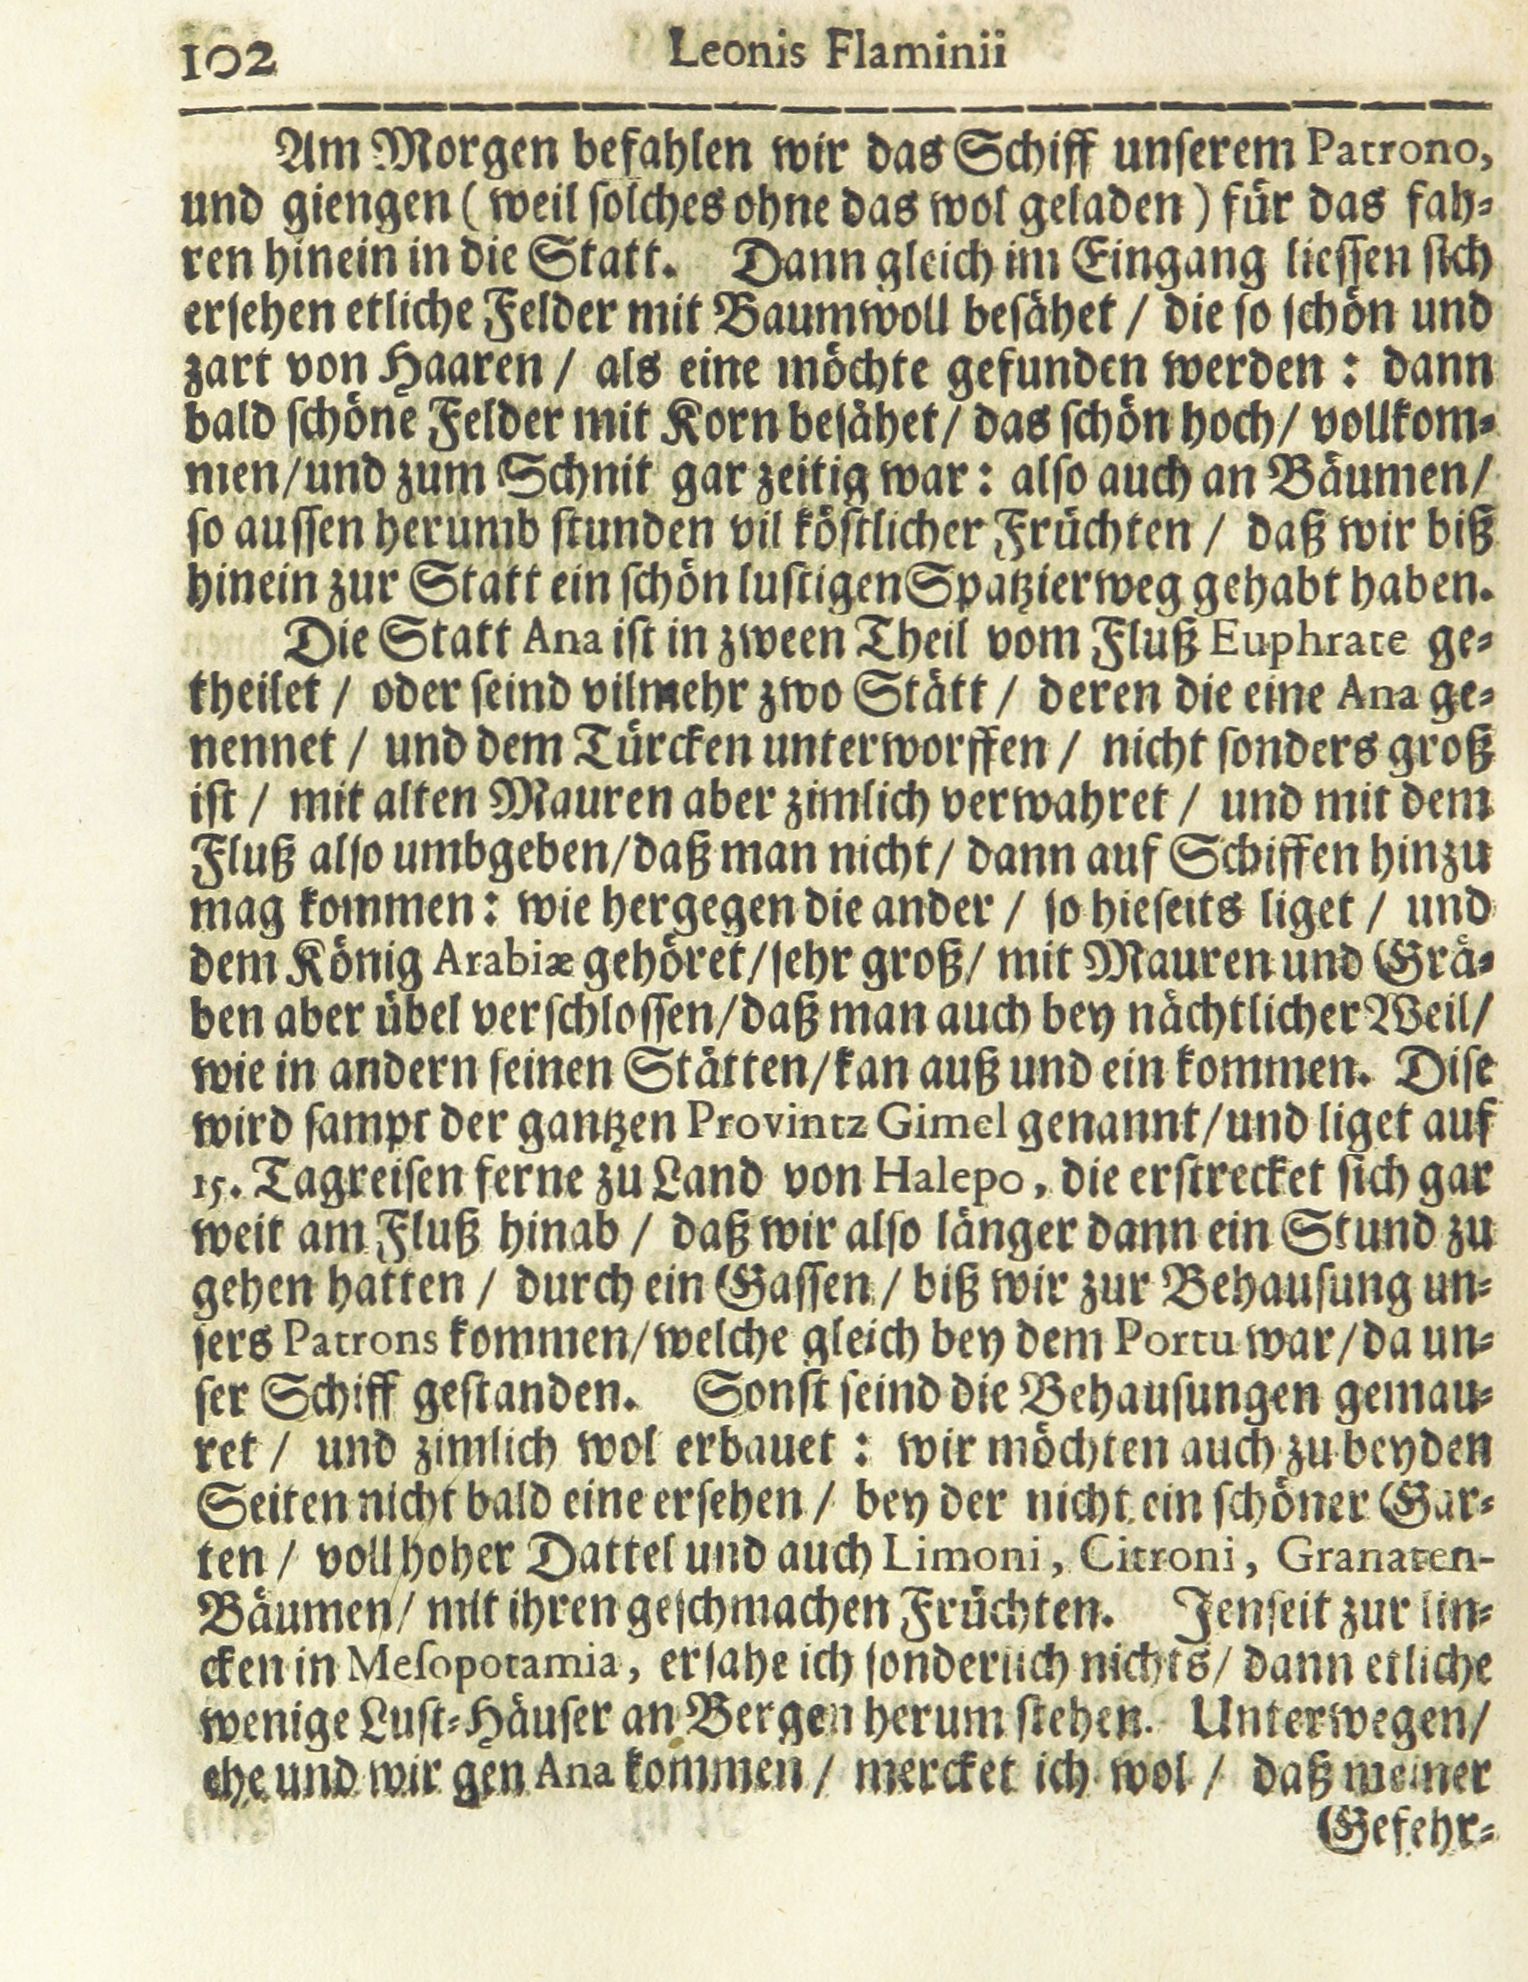 102 Leonis Flaminii
Am Morgen befahlen wir das Schiff unſerem Patrono,
und giengen (weil ſolches ohne das wol geladen) für das fah⸗
ren hinein in die Statt. Dann gleich im Eingang lieſſen ſich
erſehen etliche Felder mit Baumwoll beſähet / die ſo ſchön und
zart von Haaren / als eine möchte gefunden werden: dann
bald ſchöne Felder mit Korn beſähet / das ſchön hoch / vollkom⸗
men / und zum Schnit gar zeitig war: alſo auch an Bäumen /
ſo auſſen herumb ſtunden vil köſtlicher Früchten / daß wir biß
hinein zur Statt ein ſchön luſtigen Spatzierweg gehabt haben.
Die Statt Ana iſt in zween Theil vom Fluß Euphrate ge⸗
theilet / oder ſeind vilmehr zwo Stätt / deren die eine Ana ge⸗
nennet / und dem Türcken unterworffen / nicht ſonders groß
iſt / mit alten Mauren aber zimlich verwahret / und mit dem
Fluß alſo umbgeben / daß man nicht / dann auf Schiffen hinzu
mag kommen: wie hergegen die ander / ſo hieſeits liget / und
dem König Arabiæ gehöret / ſehr groß / mit Mauren und Grä⸗
ben aber übel verſchloſſen / daß man auch bey nächtlicher Weil /
wie in andern ſeinen Stätten / kan auß und ein kommen. Diſe
wird ſampt der gantzen Provintz Gimel genannt / und liget auf
15. Tagreiſen ferne zu Land von Halepo, die erſtrecket ſich gar
weit am Fluß hinab / daß wir alſo länger dann ein Stund zu
gehen hatten / durch ein Gaſſen / biß wir zur Behauſung un⸗
ſers Patrons kommen / welche gleich bey dem Portu war / da un⸗
ſer Schiff geſtanden. Sonſt ſeind die Behauſungen gemau⸗
ret / und zimlich wol erbauet: wir möchten auch zu beyden
Seiten nicht bald eine erſehen / bey der nicht ein ſchöner Gar⸗
ten / voll hoher Dattel und auch Limoni, Citroni, Granaten-
Bäumen / mit ihren geſchmachen Früchten. Jenſeit zur lin⸗
cken in Meſopotamia, erſahe ich ſonderlich nichts / dann etliche
wenige Luſt⸗Häuſer an Bergen herum ſtehen. Unterwegen /
ehe und wir gen Ana kommen / mercket ich wol / daß meiner
Gefehr⸗